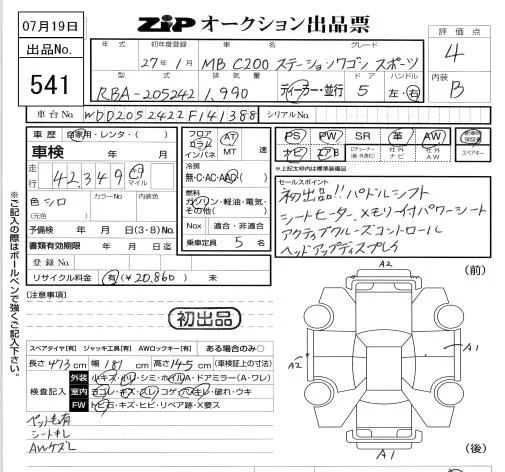 07月19日
ZIP オークション出品票
出品No.
541
年式 初年度登録 車名 グレード
27年1月 MB C200 ステーションワゴン スポーツ
型式 排気量 ドア ハンドル
RBA-205242 1,990 ディーラー・並行 5 左・右
評価点
4
内装
B
車台No. WDD2052422F141388 シリアルNo.
車歴 自家用・レンタ・( )
車検 年 月
走行 42,349 マイル
色 シロ カラーNo 内装色
(元色)
予備検 年 月 日(3・8) No.
書類有効期限 年 月 日迄
登録No.
リサイクル料金 有(¥20,860) 未
フロア コラム インパネ AT MT 速
冷房
無・C・AC・AAC
燃料
ガソリン・軽油・電気・その他( )
Nox 適合・非適合
乗車定員 5 名
PS PW SR 革 AW 新車時保証書
ナビ エアB Dチューナー(純・外含む) 社外ナビ 社外AW スペアキー
※上記太枠内は標準装備品
セールスポイント
初出品!! パドルシフト
シートヒーター、メモリィ付パワーシート
アクティブクルーズコントロール
ヘッドアップディスプレイ
※ご記入の際はボールペンで強くご記入下さい。
[注意事項]
初出品
スペアタイヤ[有] ジャッキ工具[有] AWロックキー[有] ある場合のみ○
長さ 473 cm 幅 181 cm 高さ 145 cm (車検証上の寸法)
検査記入
外装 小キズ・小凹・シミ・ホイルA・ドアミラー(A・ワレ)
室内 ヨゴレ・キズ・スレ・コゲ・ハキレ・破れ・ウキ
FW トビ石・キズ・ヒビ・リペア跡・X要ス
ペット毛有
シートキレ
AWケズレ
(前)
A2
A2
A1
A1
(後)